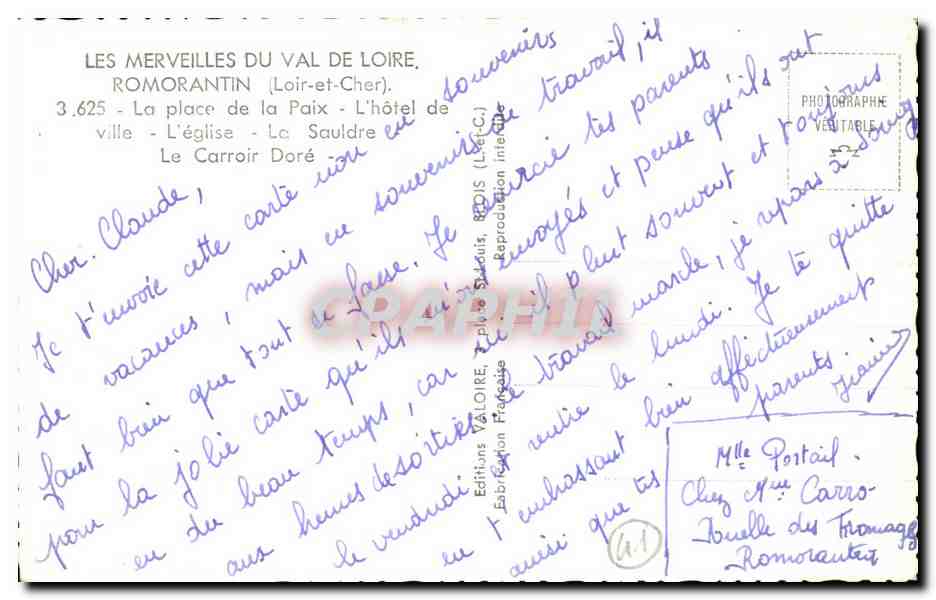 LES MERVEILLES DU VAL DE LOIRE,
ROMORANTIN (Loir-et-Cher).
3.625 - La place de la Paix - L'hôtel de
ville - L'église - La Sauldre
Le Carroir Doré -
PHOTOGRAPHIE
VÉRITABLE
Cher Claude,
Je t'envoie cette carte non en souvenirs
de vacances, mais en souvenirs de travail, il
faut bien que tout se fasse. Je remercie tes parents
pour la jolie carte qu'ils m'ont envoyés et pense qu'ils ont
eu du beau temps, car ici il pleut souvent et toujours
aux heures de sorties. Le travail marche, je repars à
le vendredi et rentre le lundi. Je te quitte
en t'embrassant bien affectueusement
ainsi que tes parents
Editions VALOIRE, place St-Louis, BLOIS (L.-et-C.)
Fabrication Française Reproduction interdite
CPAPHIL
41
Mlle Portail.
Chez Mme Carro-
Rouelle des Fromages
Romorantin